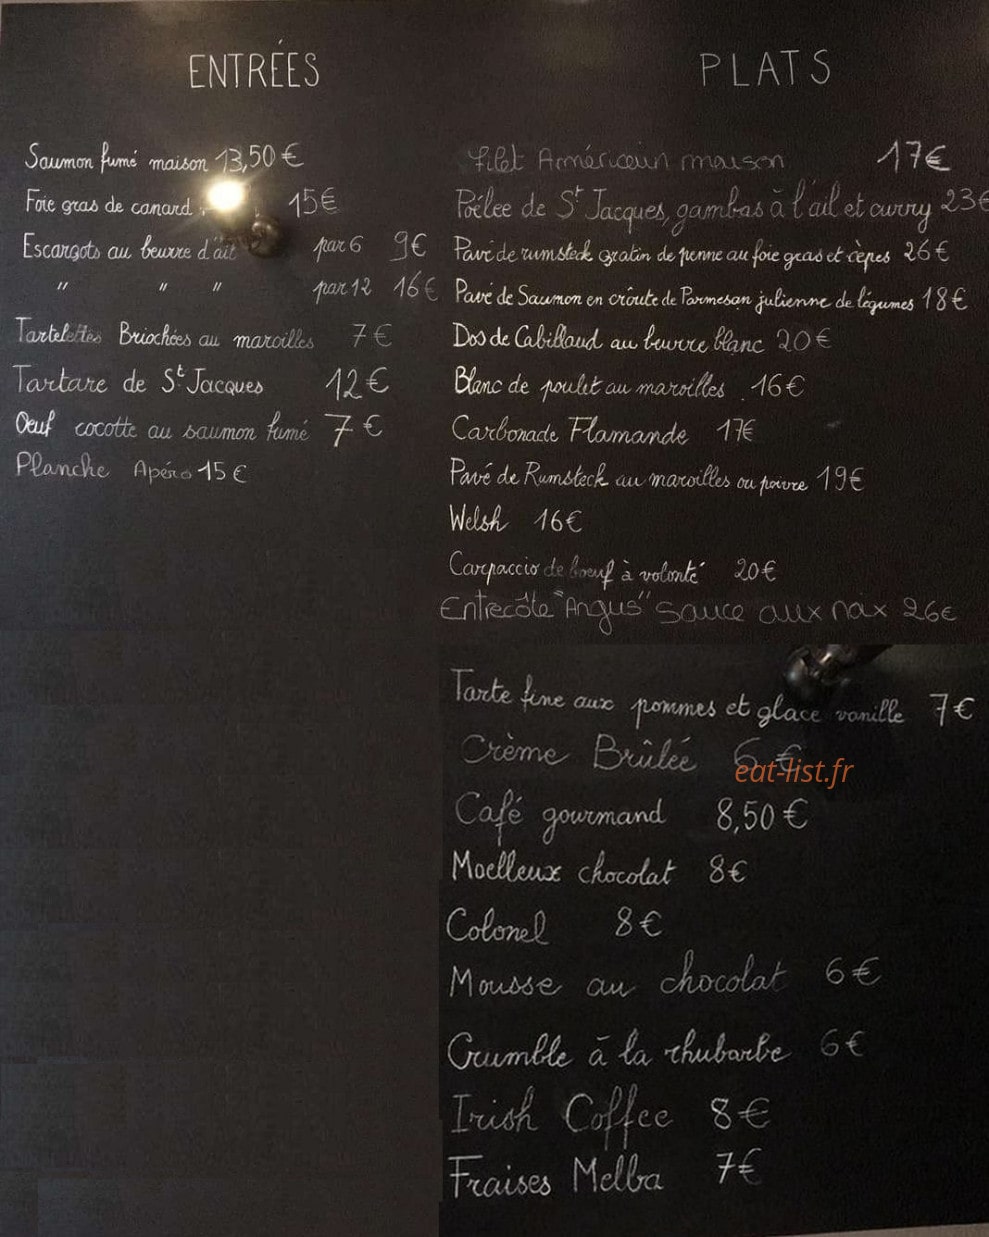 ENTRÉES
Saumon fumé maison 13,50 €
Foie gras de canard 15€
Escargots au beurre d'ail par 6 9€
" " " par 12 16€
Tartelettes Briochées au maroilles 7€
Tartare de St Jacques 12€
Oeuf cocotte au saumon fumé 7€
Planche Apéro 15€
PLATS
Filet Américain maison 17€
Poêlee de St Jacques, gambas à l'ail et curry 23€
Pavé de rumsteck gratin de penne au foie gras et cèpes 26€
Pavé de Saumon en croûte de Parmesan julienne de légumes 18€
Dos de Cabillaud au beurre blanc 20€
Blanc de poulet au maroilles 16€
Carbonade Flamande 17€
Pavé de Rumsteck au maroilles ou poivre 19€
Welsh 16€
Carpaccio de boeuf à volonté 20€
Entrecôte "Angus" Sauce aux noix 26€
Tarte fine aux pommes et glace vanille 7€
Crème Brûlée 6€
eat-list.fr
Café gourmand 8,50€
Moelleux chocolat 8€
Colonel 8€
Mousse au chocolat 6€
Crumble à la rhubarbe 6€
Irish Coffee 8€
Fraises Melba 7€